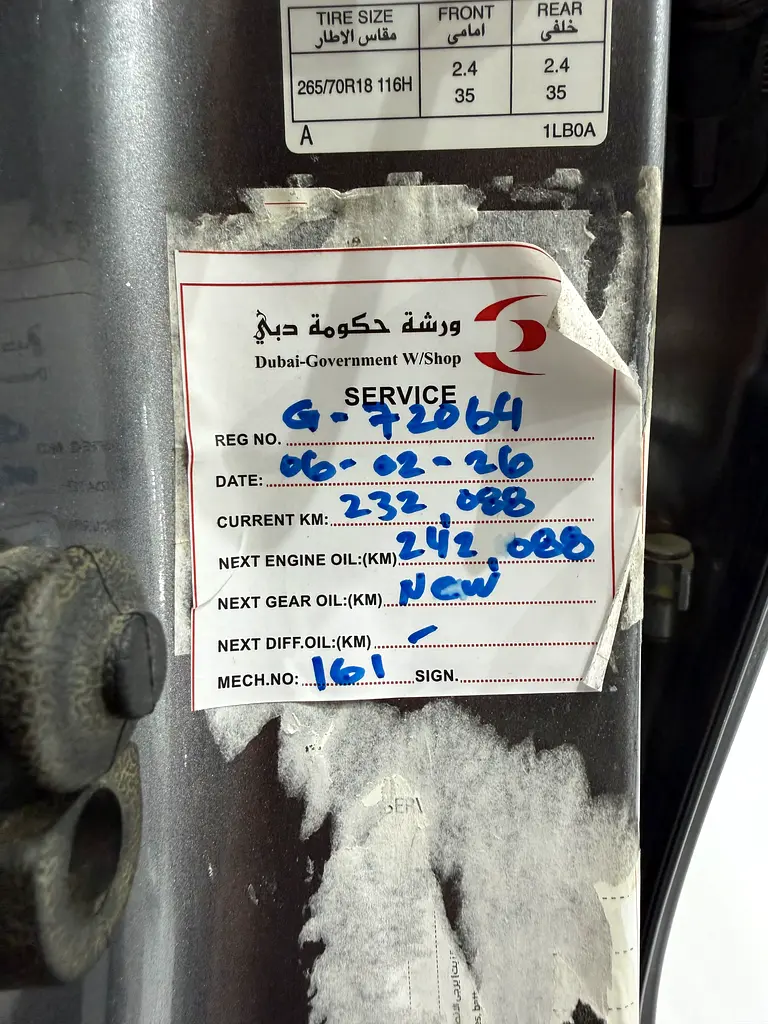 TIRE SIZE FRONT REAR
مقاس الاطار امامى خلفى
265/70R18 116H 2.4 2.4
35 35
A 1LB0A
ورشة حكومة دبي
Dubai-Government W/Shop
SERVICE
REG NO. G-72064
DATE: 06-02-26
CURRENT KM: 232,088
NEXT ENGINE OIL:(KM) 242,088
NEXT GEAR OIL:(KM) New
NEXT DIFF.OIL:(KM) -
MECH.NO: 161 SIGN.
SERV